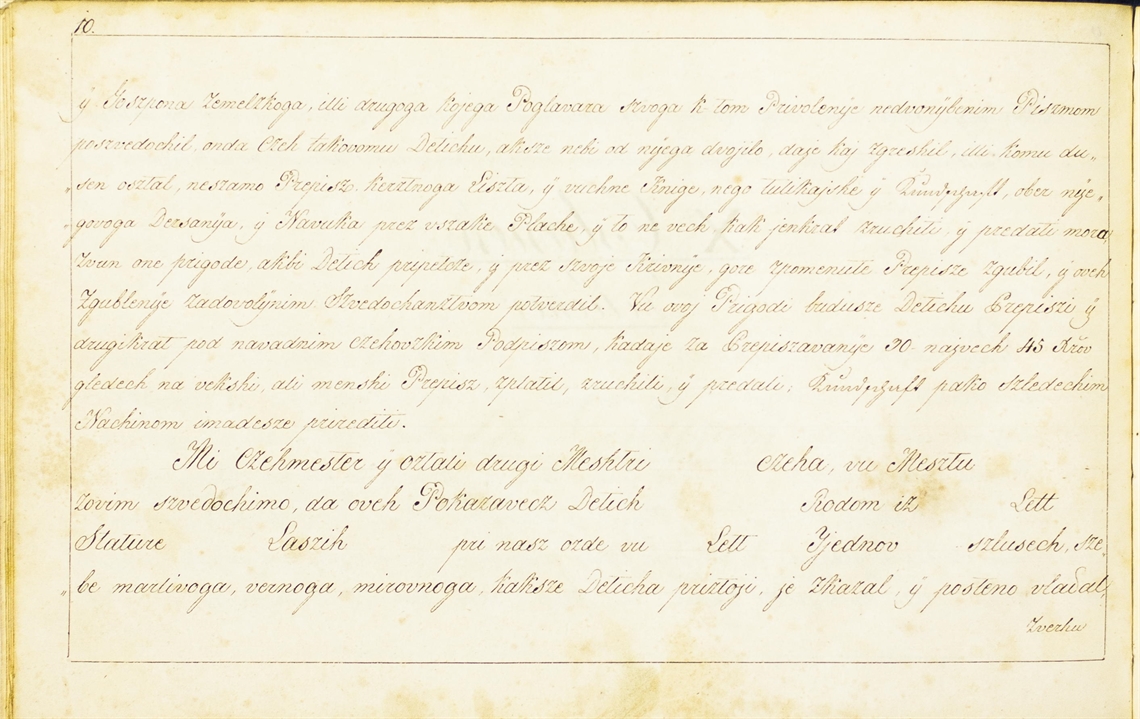 10.
ÿ Goszpona Zemelzkoga, illi drugoga kojega Poglavara szvoga k tom Privolenije nedvonÿbenim Piszmom
poszvedochil, onda Czeh takovomu Detichu, aksze neki od nijega dvojilo, daje kaj zgreshil, illi komu du„
„sen osztal, neszamo Prepisz kersztnoga Liszta, ÿ vuchne Knige, nego tulikajshe ÿ Kundschaft, ober nije„
„govoga Dersanÿa, ÿ Navuka prez vszake Plache, ÿ to ne vech, kak jenkrat zruchiti, ÿ predati mora,
zvun one prigode, akbi Detich pripetoze, ÿ prez szvoje Krivnije, gore zpomenute Prepisze zgubil, ÿ oveh
Zgublenije zadovolÿnim Szvedochansztvom potverdil. Vu ovoj Prigodi budusze Detichu Prepiszi ÿ
drugikrat pod navadnim czehovzkim Podpiszom, kadaje za Prepiszavanije 30 najvech 45 Krŏv
gledech na vekshi, ali menshi Prepisz, zplatil, zruchiti, ÿ predati; Kundschaft pako szledechim
Nachinom imadesze prirediti.
Mi Czehmester ÿ osztali drugi Meshtri czeha, vu Mesztu
zovim szvedochimo, da oveh Pokazavecz Detich Rodom iz Lett
Stature Laszih pri nasz ovde vu Lett Yjednov szlusech, sze„
„be marlivoga, vernoga, mirovnoga, kaksze Deticha prisztoji, je zkazal, ÿ posteno vladal,
Zverhu